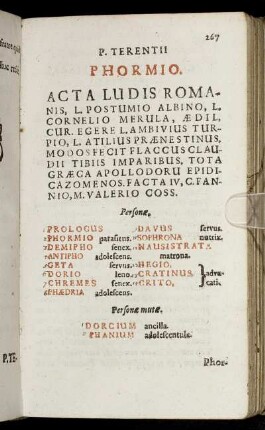 267
P. TERENTII
PHORMIO.
ACTA LUDIS ROMA-
NIS, L. POSTUMIO ALBINO, L.
CORNELIO MERULA, ÆDIL.
CUR. EGERE L. AMBIVIUS TUR-
PIO, L. ATILIUS PRÆNESTINUS,
MODOS FECIT FLACCUS CLAU-
DII TIBIIS IMPARIBUS, TOTA
GRÆCA APOLLODORU EPIDI-
CAZOMENOS. FACTA IV, C. FAN-
NIO, M. VALERIO COSS.
Personæ.
PROLOGUS
PHORMIO parasitus.
DEMIPHO senex.
ANTIPHO adolescens.
GETA servus.
DORIO leno.
CHREMES senex.
PHÆDRIA adolescens.
DAVUS servus.
SOPHRONA nutrix.
NAUSISTRATA
matrona.
HEGIO,
CRATINUS, advo-
CRITO, cati.
Personæ mutæ.
DORCIUM ancilla.
PHANIUM adolescentula.
Phor-
P. TE-